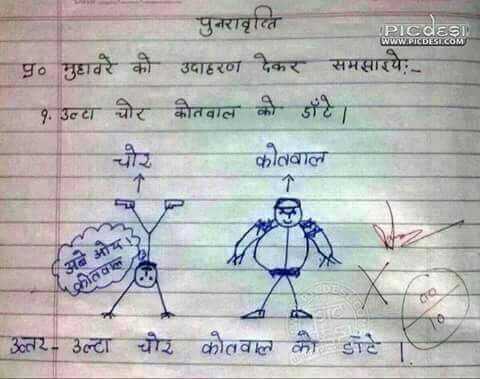 पुनरावृत्ति
PICdESI
WWW.PICDESI.COM
प्र० मुहावरे को उदाहरण देकर समझाइये:-
१. उल्टा चोर कोतवाल को डाँटे।
चोर कोतवाल
अबे ओय
कोतवाल
00
10
उत्तर - उल्टा चोर कोतवाल को डाँटे।